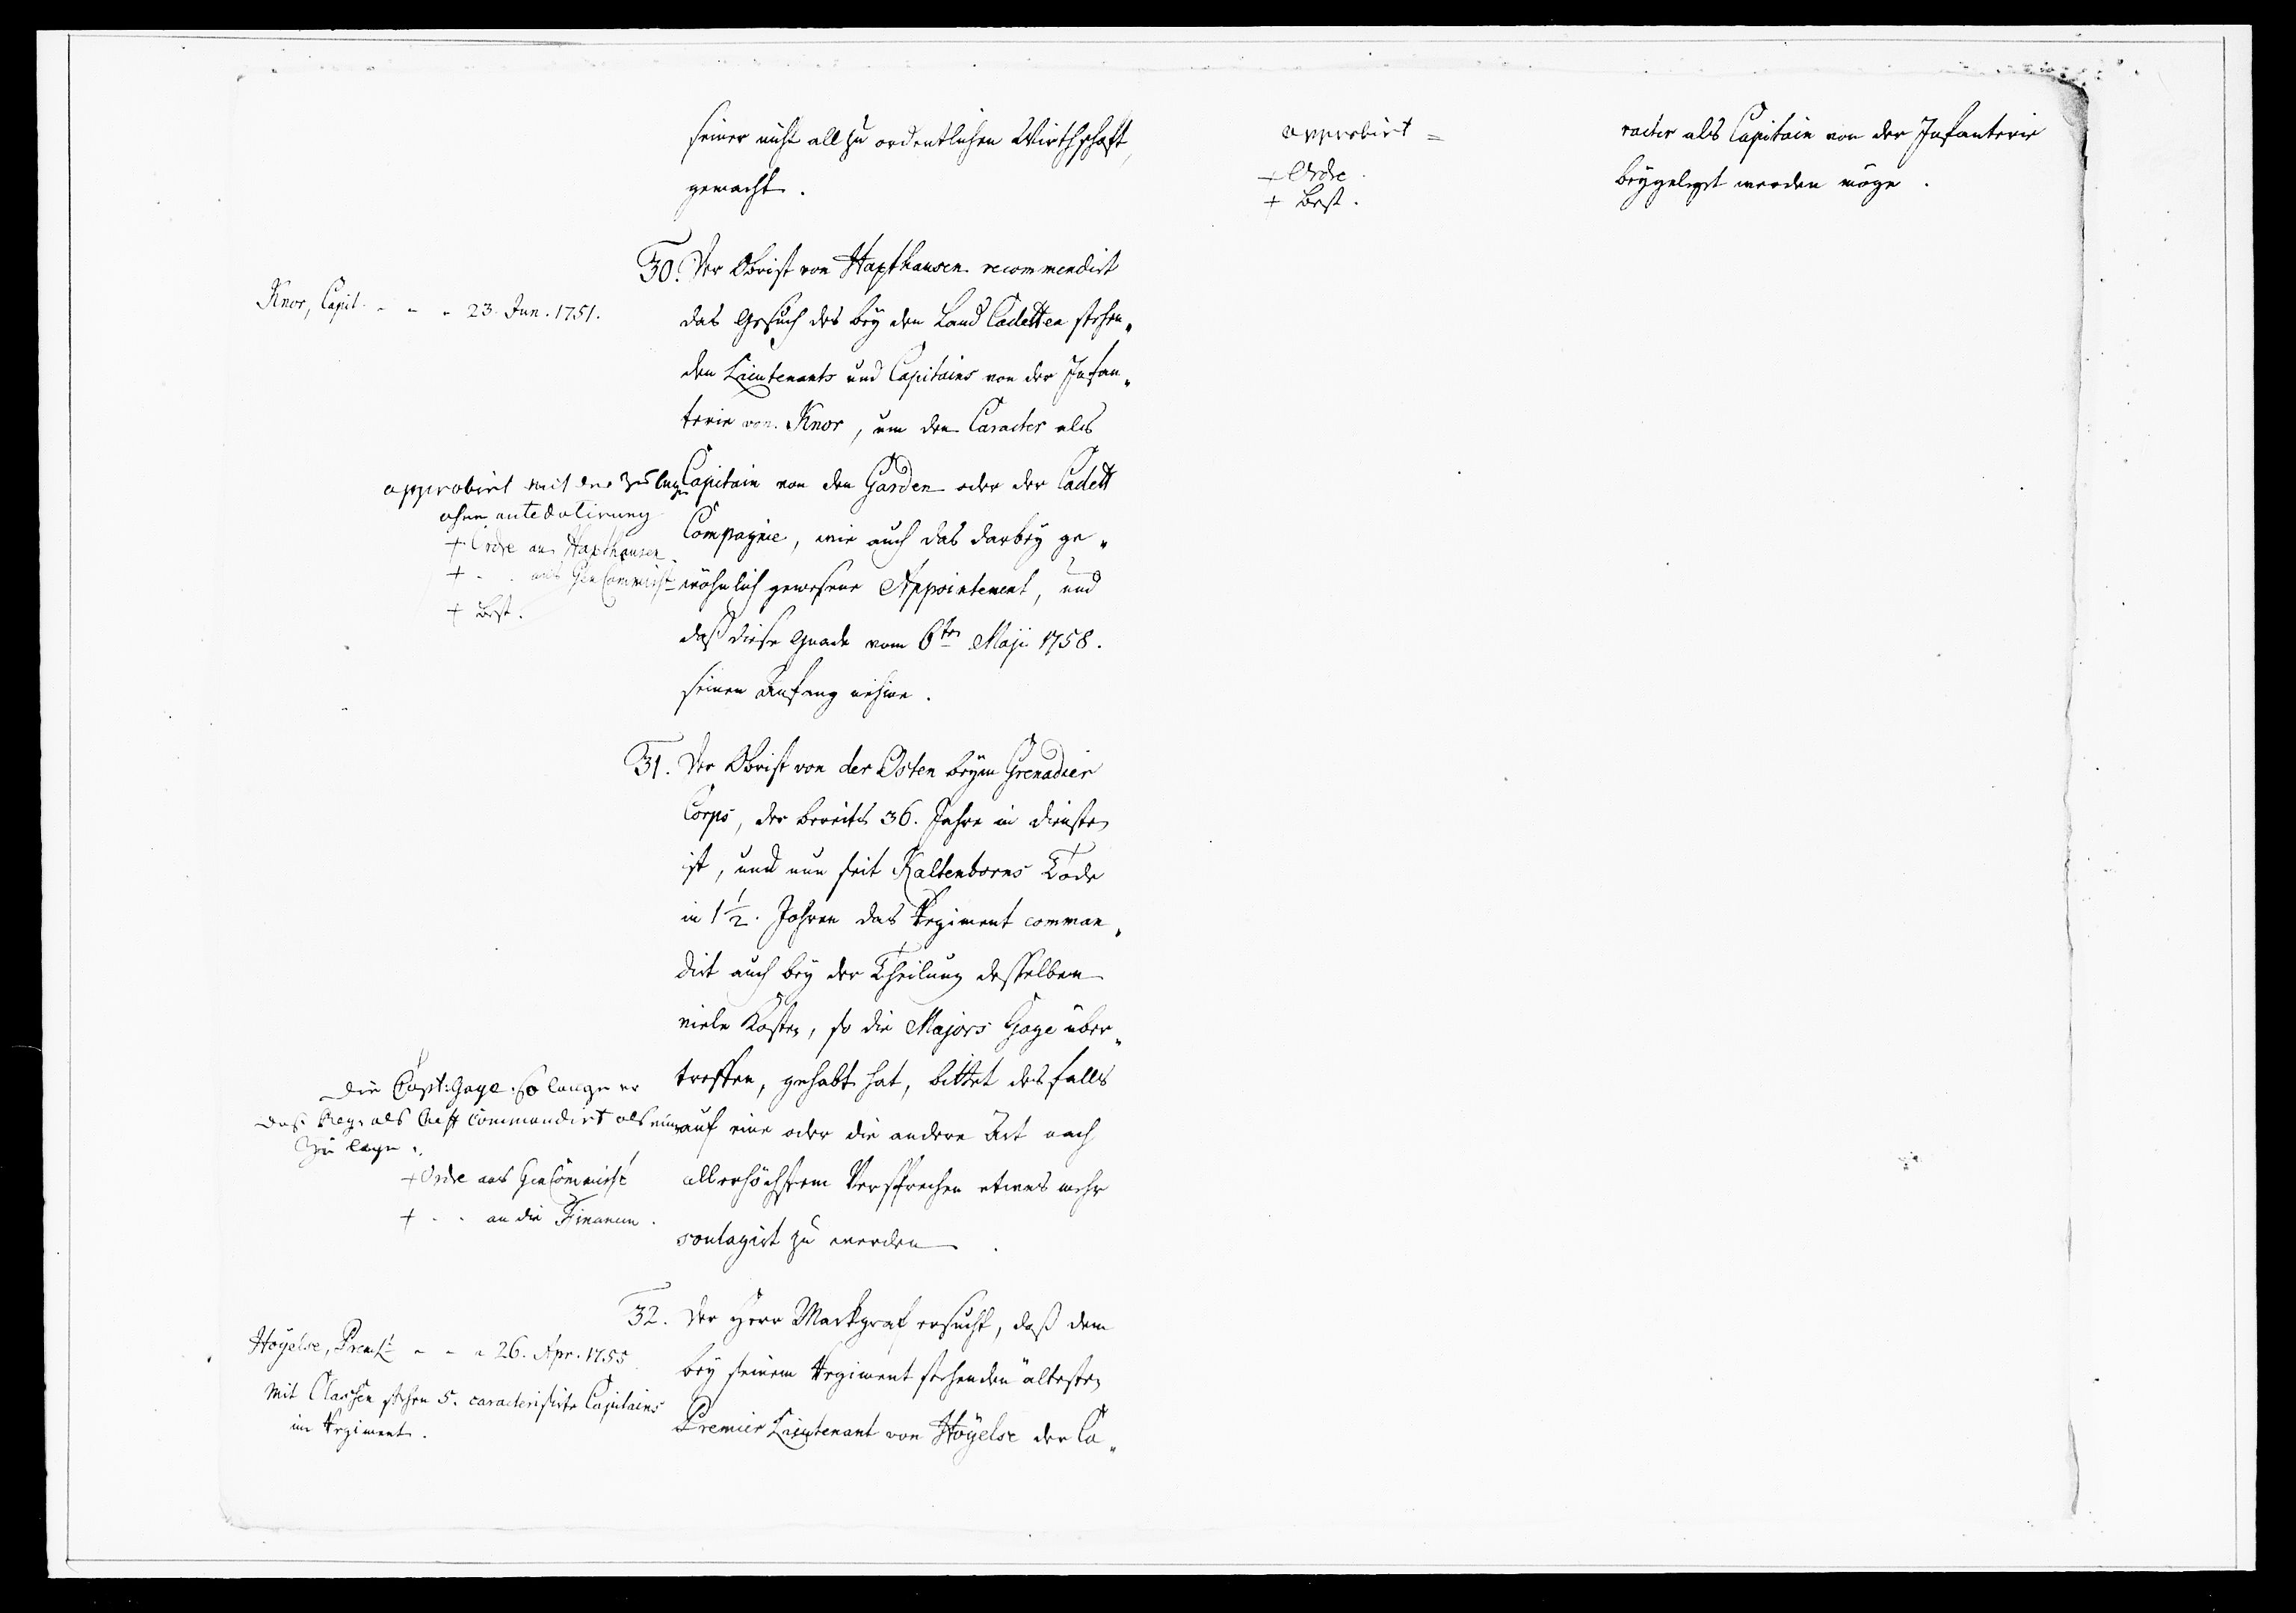 seiner nicht all zu ordentlichen Wirthschaft,
gemacht.
30. Der Obrist von Haxthausen recommendirt
Knor, Capit. - - - 23. Jun. 1751.
das Gesuch des bey den Land Cadetten stehen„
den Lieutenants und Capitains von der Infan„
terie von Knor, um den Caracter als
Capitain von den Garden oder der Cadett
Compagnie, wie auch das darbey ge„
wöhnlich gewesene Appointement, und
daß diese Gnade vom 6ten Maji 1758.
seinen Anfang nehme.
approbirt mit der Zulage
ohne antedatirung
+ Ordre an Haxthausen
+ - - ans GenCommiss.
+ Best.
31. Der Obrist von der Osten beym Grenadier
Corps, der bereits 36. Jahre in diensten
ist, und nun seit Kaltenborns Tode
in 1 1/2. Jahren das Regiment comman„
dirt auch bey der Theilung desselben
viele Kosten, so die Majors Gage über„
treffen, gehabt hat, bittet desfalls
auf eine oder die andere Art nach
allerhöchstem Versprechen etwas mehr
soulagirt zu werden.
Die Capt: Gage so lange er
das Reg. als Cheff commandirt als eine
Zulage.
+ Ordre ans GenCommiss.
+ - - an die Financen.
32. Der Herr Markgraf ersucht, daß dem
bey seinem Regiment stehenden ältesten
Premier Lieutenant von Höyelse der Ca„
Höyelse, Prem Lt - - - 26. Apr. 1755.
Mit Classen stehen 5. caracterisirte Capitains
im Regiment.
approbirt =
+ Ordre
+ Best.
racter als Capitain von der Infanterie
beygelegt werden möge.